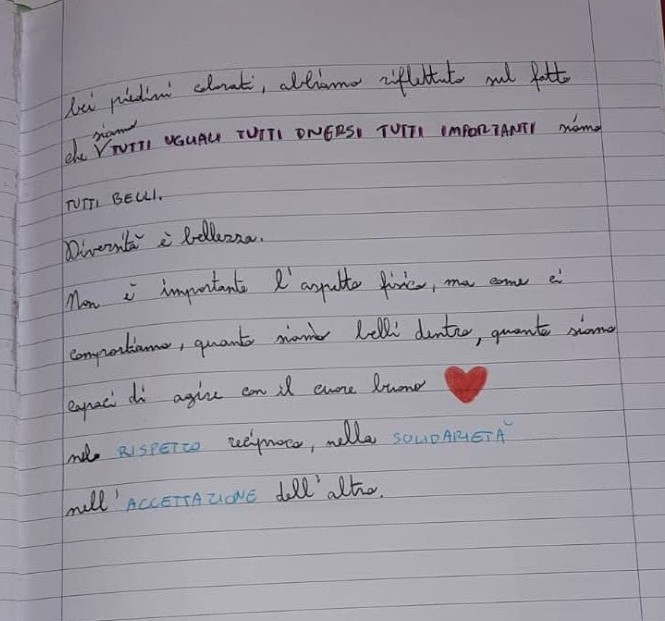 bei piedini colorati, abbiamo riflettuto sul fatto
siamo
che V TUTTI UGUALI TUTTI DIVERSI TUTTI IMPORTANTI siamo
TUTTI BELLI.
Diversità è bellezza.
Non è importante l'aspetto fisico, ma come ci
comportiamo, quanto siamo belli dentro, quanto siamo
capaci di agire con il cuore buono
nel RISPETTO reciproco, nella SOLIDARIETÀ
nell'ACCETTAZIONE dell'altro.